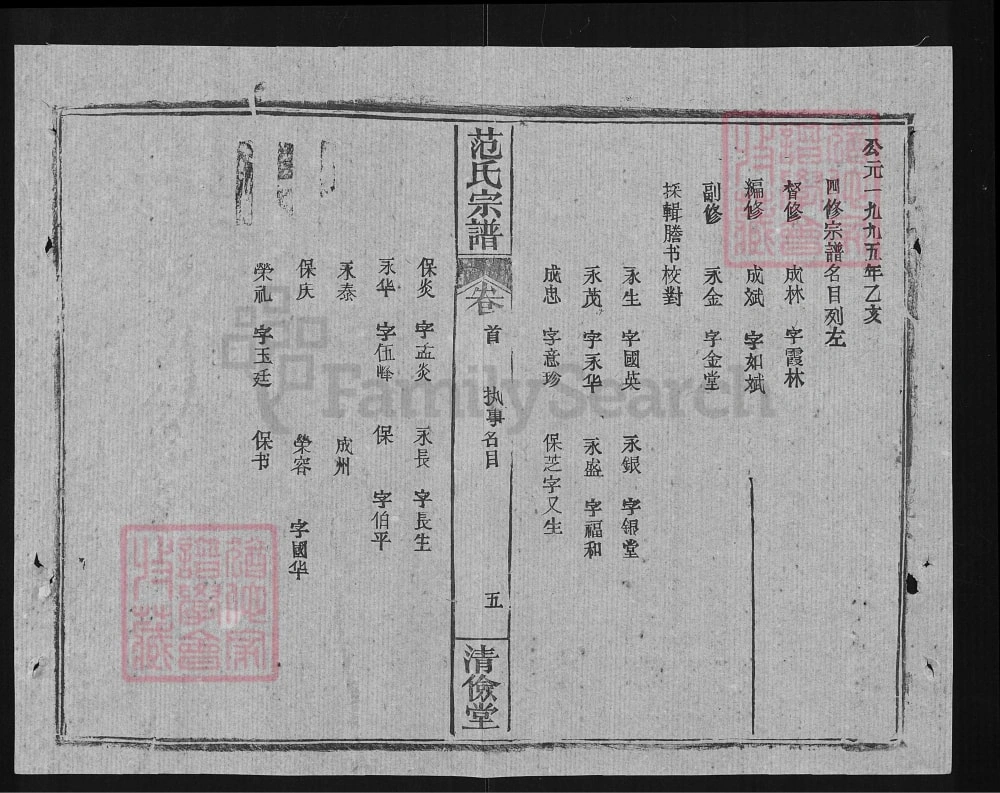 公元一九九五年乙亥
四修宗譜名目列左
督修 成林 字霞林
編修 成斌 字如斌
副修 永金 字金堂
採輯謄书校對
永生 字國英 永銀 字银堂
永茂 字永华 永盛 字福和
成忠 字意珍 保芝字又生
范氏宗譜
卷首 执事名目 五
清儉堂
保炎 字孟炎 永長 字長生
永华 字伍峰 保 字伯平
永泰 成州
保庆 榮容 字國华
榮礼 字玉廷 保书
FamilySearch